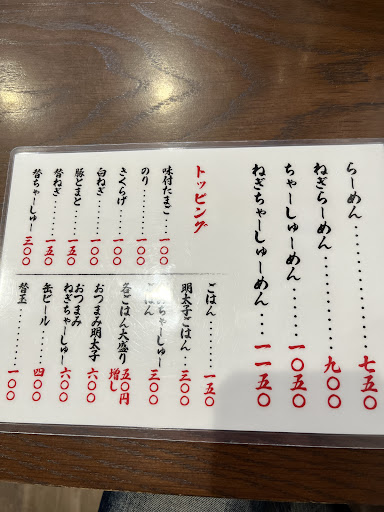 らーめん……………七五〇
ねぎらーめん………九〇〇
ちゃーしゅーめん……一〇五〇
ねぎちゃーしゅーめん……一一五〇
トッピング
味付たまご……一〇〇
のり……………一〇〇
きくらげ………一〇〇
白ねぎ…………一〇〇
豚とまと………一五〇
替ねぎ…………一五〇
替ちゃーしゅー…三〇〇
ごはん…………一五〇
明太子ごはん…三〇〇
ちゃーしゅー
ごはん…………三〇〇
各ごはん大盛り 五〇円増し
おつまみ明太子 六〇〇
おつまみ
ねぎちゃーしゅー 六〇〇
缶ビール………四〇〇
替玉……………一〇〇